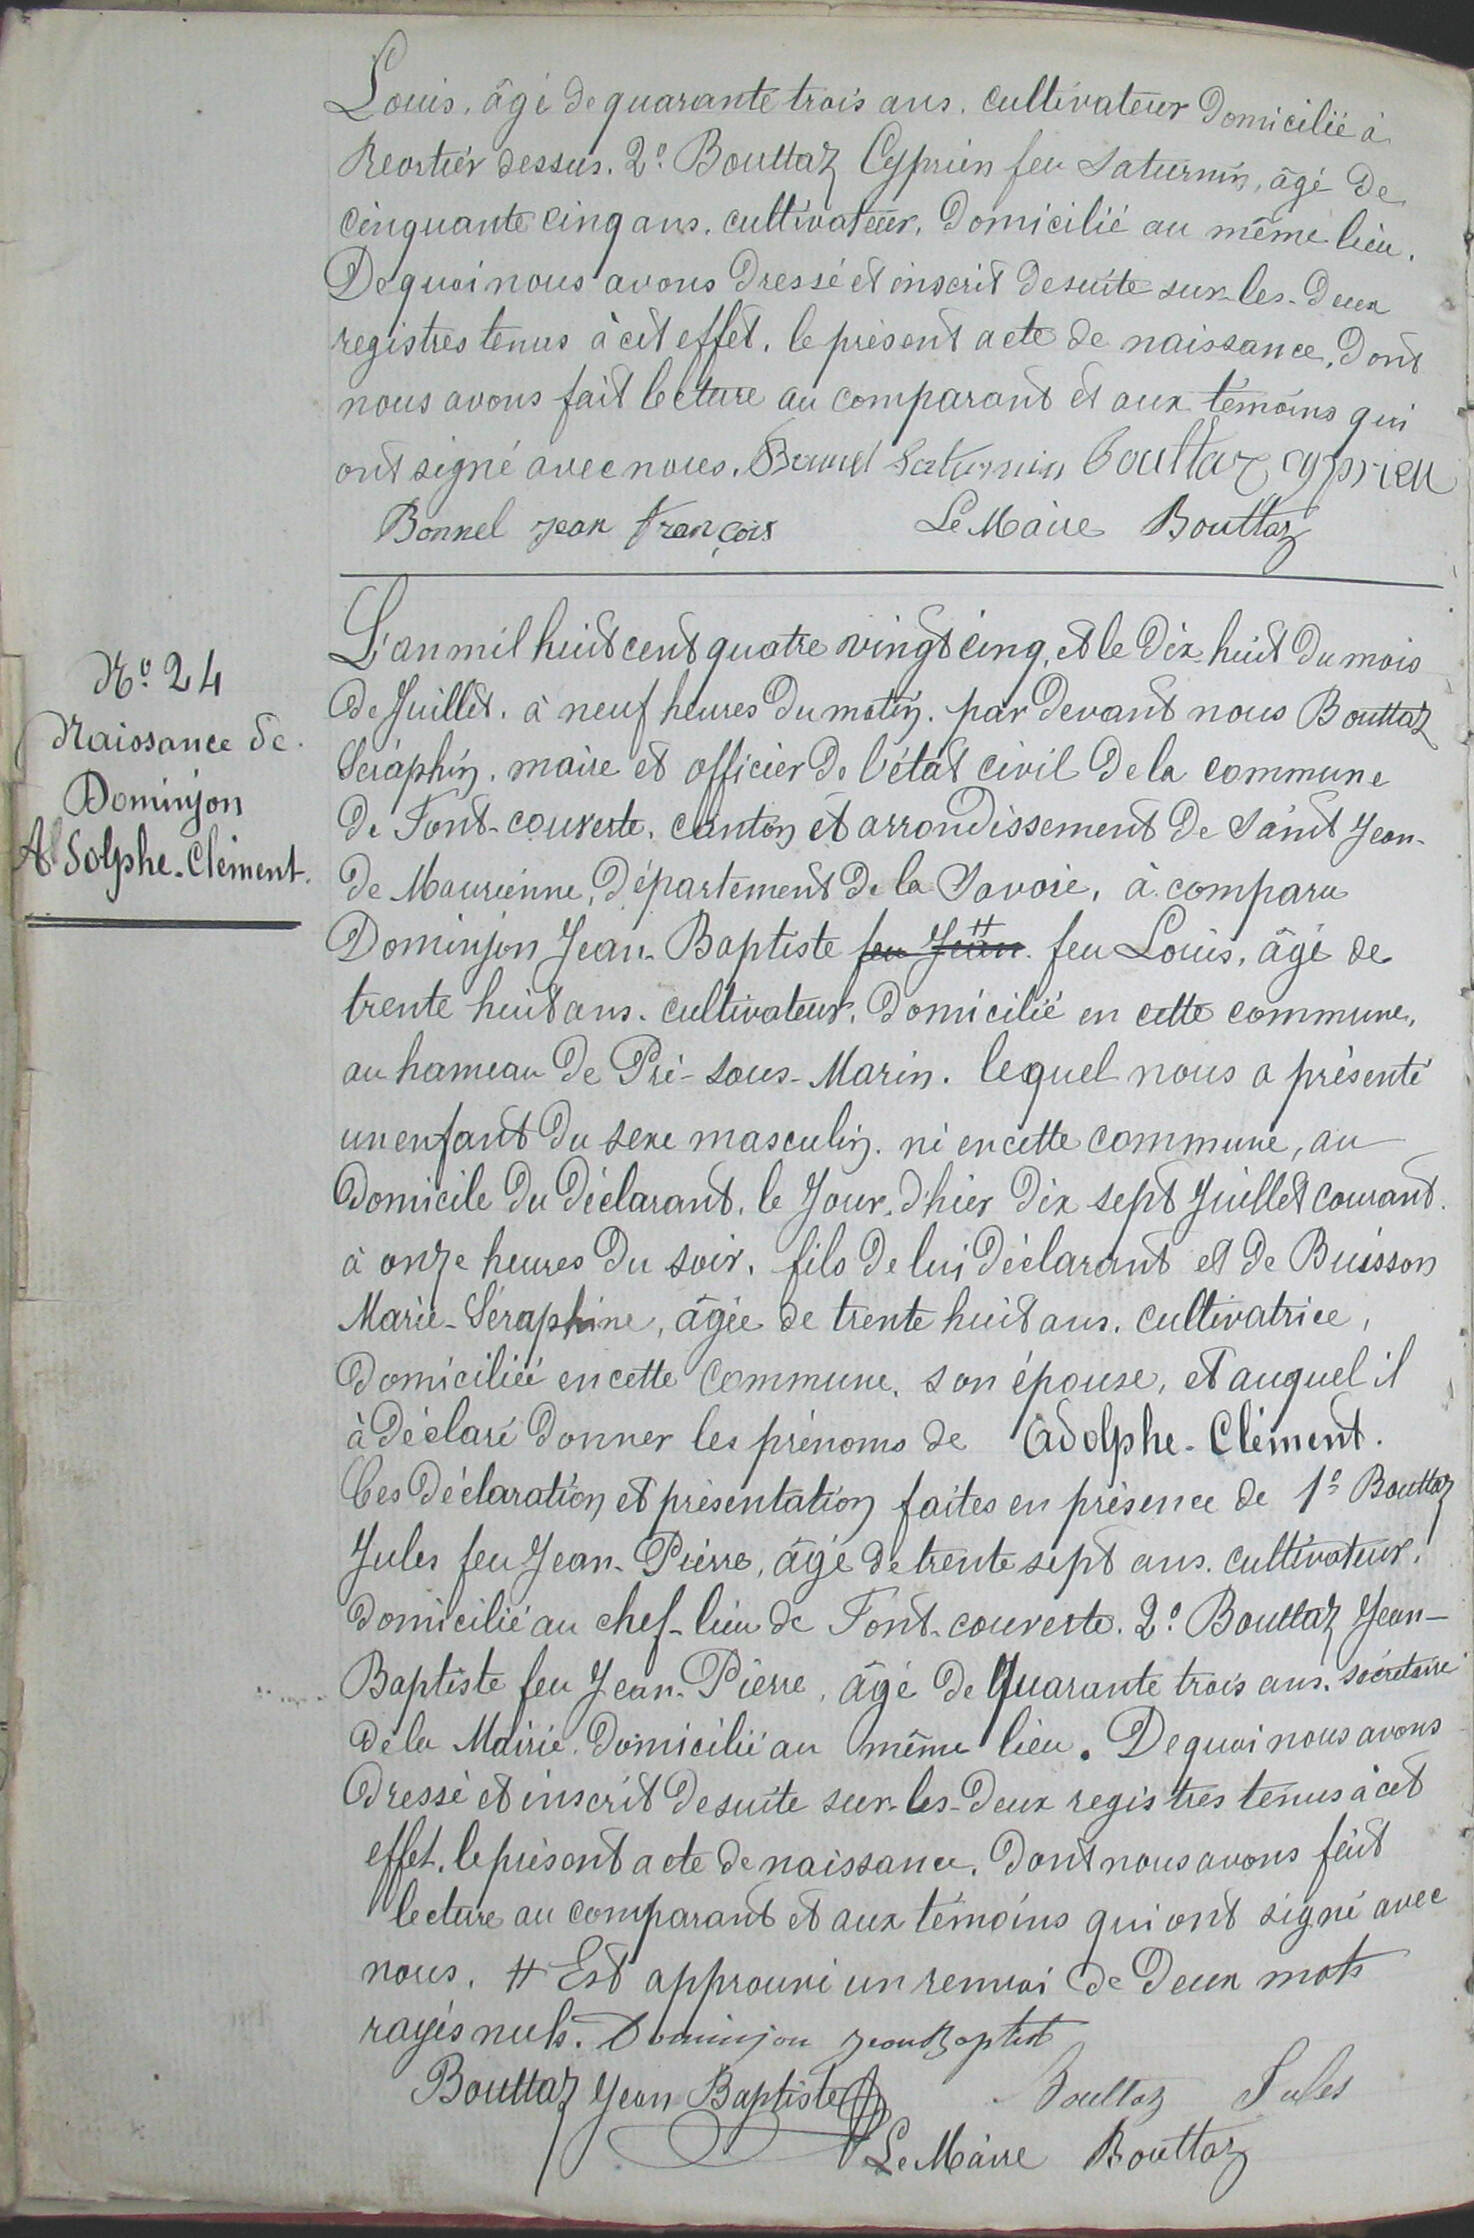 Louis, âgé de quarante trois ans, cultivateur domicilié à
Reortier dessus. 2° Bouttaz Cyprien feu Saturnin, âgé de
cinquante cinq ans, cultivateur, domicilié au même lieu.
De quoi nous avons dressé et inscrit de suite sur les deux
registres tenus à cet effet, le présent acte de naissance, dont
nous avons fait lecture au comparant et aux témoins qui
ont signé avec nous. Saturnin Bouttaz cyprien
Bonnel jean françois Le Maire Bouttaz
N° 24
Naissance de
Dominjon
Adolphe-Clément.
L'an mil huit cent quatre vingt cinq, et le dix huit du mois
de Juillet, à neuf heures du matin. par devant nous Bouttaz
Séraphin, maire et officier de l'état civil de la commune
de Font-couverte, canton et arrondissement de Saint Jean-
de Maurienne, département de la Savoie, à comparu
Dominjon Jean-Baptiste feu Jean # feu Louis, âgé de
trente huit ans, cultivateur, domicilié en cette commune,
au hameau de Pré-sous-Marin. lequel nous a présenté
un enfant du sexe masculin, né en cette commune, au
domicile du déclarant, le Jour d'hier dix sept Juillet courant
à onze heures du soir, fils de lui déclarant et de Buisson
Marie-Séraphine, âgée de trente huit ans, cultivatrice,
domiciliée en cette commune, son épouse, et auquel il
à déclaré donner les prénoms de Adolphe-Clément.
Ces déclaration et présentation faites en présence de 1° Bouttaz
Jules feu Jean-Pierre, âgé de trente sept ans, cultivateur,
domicilié au chef-lieu de Font-couverte. 2° Bouttaz Jean-
Baptiste feu Jean-Pierre, âgé de quarante trois ans, sécretaire
de la Mairie, domicilié au même lieu. De quoi nous avons
dressé et inscrit de suite sur les deux registres tenus à cet
effet, le présent acte de naissance, dont nous avons fait
lecture au comparant et aux témoins qui ont signé avec
nous. # Est approuvé un renvoi de deux mots
rayés nuls. Dominjon Jean Baptist
Bouttaz Jean Baptiste Bouttaz Jules
Le Maire Bouttaz